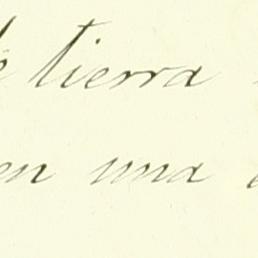 tierra
en una